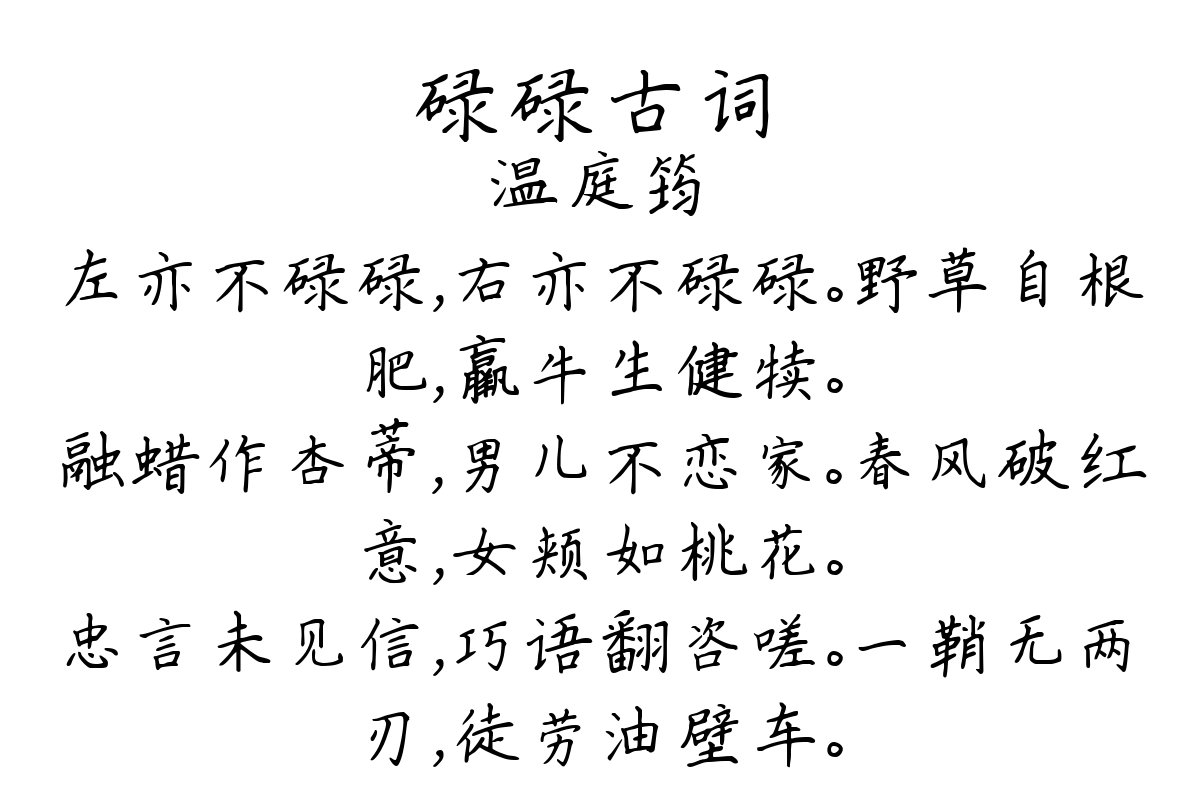 碌碌古词
温庭筠
左亦不碌碌,右亦不碌碌。野草自根
肥,羸牛生健犊。
融蜡作杏蒂,男儿不恋家。春风破红
意,女颊如桃花。
忠言未见信,巧语翻咨嗟。一鞘无两
刃,徒劳油壁车。